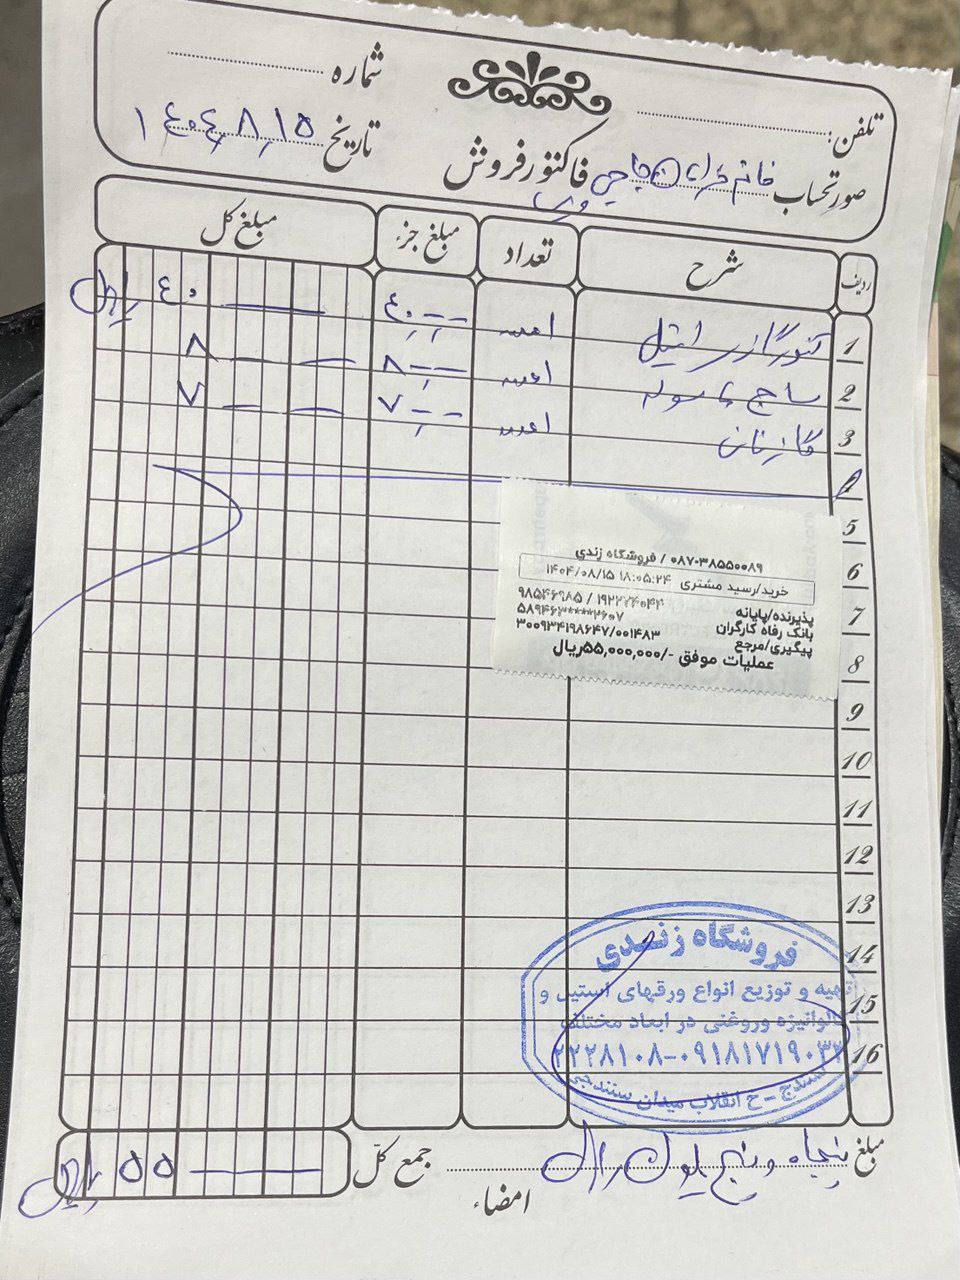 شماره
تلفن:
تاریخ ۱۴۰۴,۸,۱۵
صورتحساب خانم
فاکتور فروش
ردیف شرح تعداد مبلغ جزء مبلغ کل
1 استیل ۱عدد ۴۰-,-- ۴۰ ریال
2 ساج ۱عدد ۸-,-- ۸
3 گاز نان ۱عدد ۷-,-- ۷
4
5
6
7
8
9
10
11
12
13
14
15
16
۰۸۷-۳۸۵۵۰۰۸۹ / فروشگاه زندی
خرید/رسید مشتری ۱۴۰۴/۰۸/۱۵ ۱۸:۰۵:۲۴
پذیرنده/پایانه ۹۸۵۴۶۹۸۵ / ۱۹۲۲۷۴۰۴۲
بانک رفاه کارگران ۵۸۹۴۶۳****۲۶۰۷
پیگیری/مرجع ۳۰۰۹۳۴۱۹۸۶۴۷/۰۰۱۴۸۳
عملیات موفق -/۵۵,۰۰۰,۰۰۰ریال
فروشگاه زندی
تهیه و توزیع انواع ورقهای استیل و
گالوانیزه وروغنی در ابعاد مختلف
۲۲۲۸۱۰۸-۰۹۱۸۱۷۱۹۰۳۲
سنندج - خ انقلاب میدان سنندجی
مبلغ پنجاه و پنج میلیون ریال
جمع کل ۵۵ ریال
امضاء